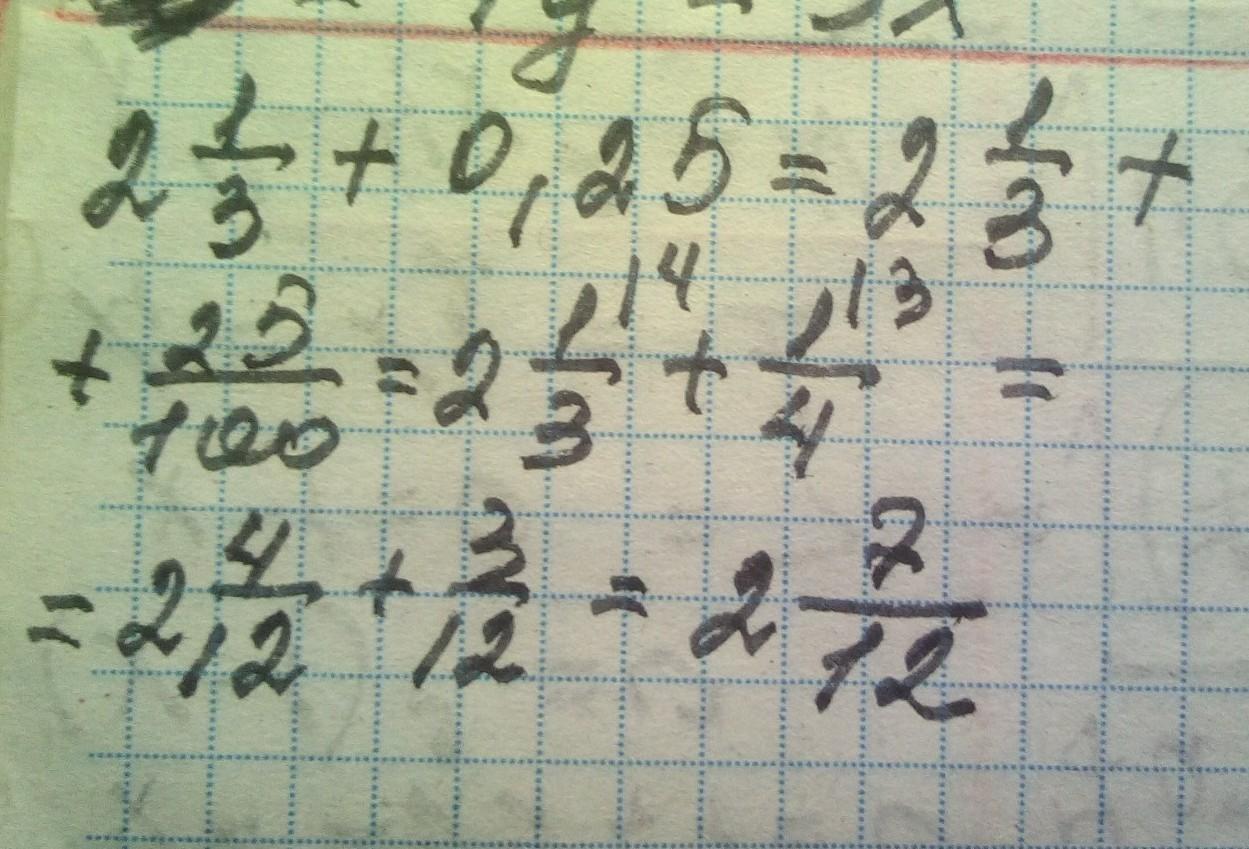 2 1/3 + 0,25 = 2 1/3 +
+ 25/100 = 2 1/3 |4 + 1/4 |3 =
= 2 4/12 + 3/12 = 2 7/12